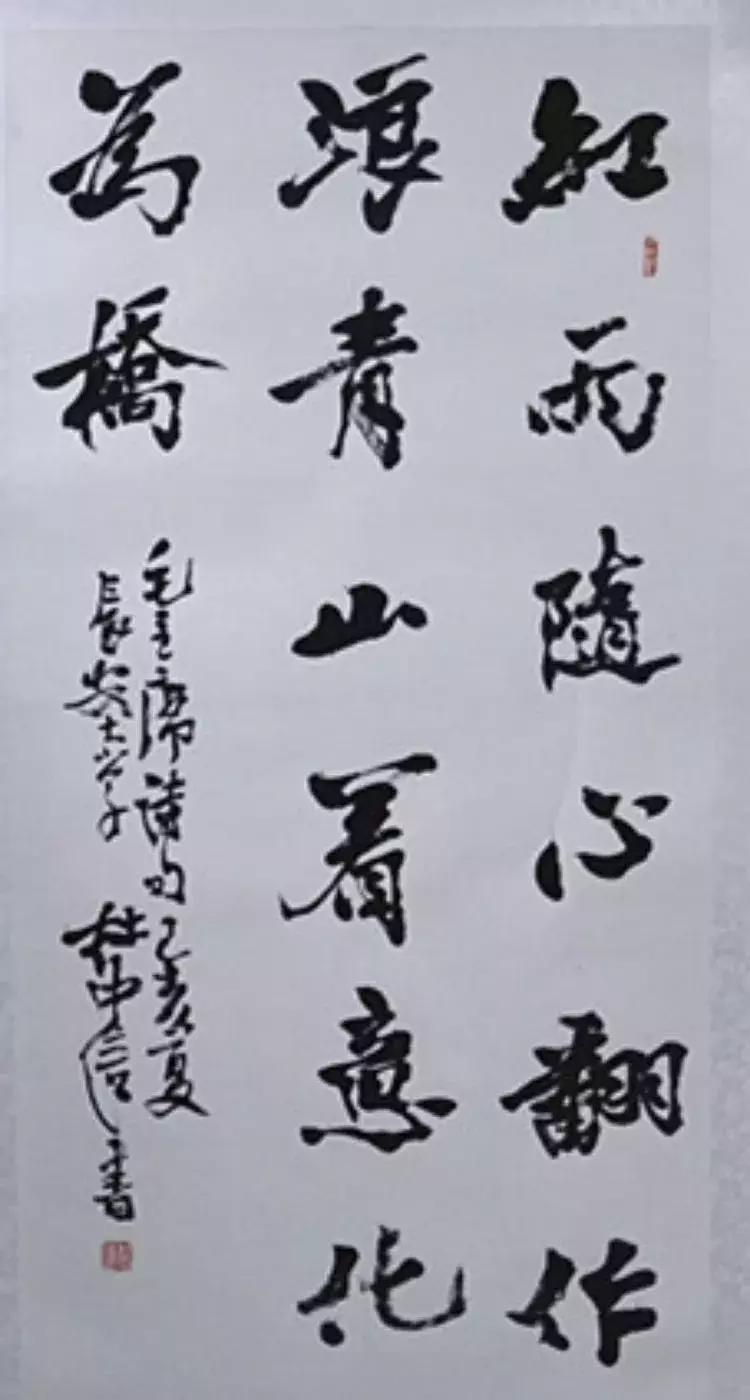 紅雨隨心翻作
浪青山着意化
為橋
毛主席詩句己亥夏
長安大學子杜中信書